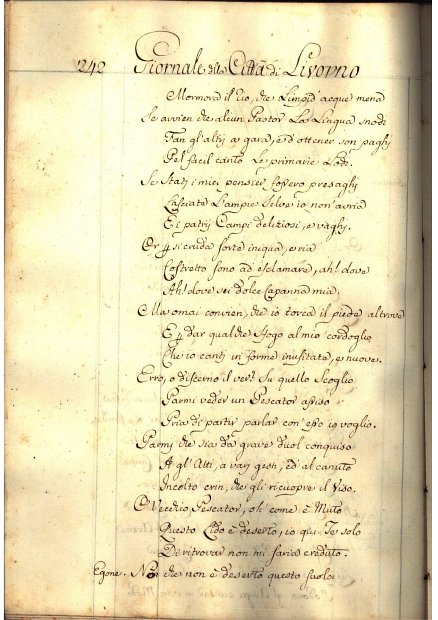 242 Giornale della Città di Livorno
Mormora il Rio, che Limpid' acque mena
Se avvien che alcun Pastor La Lingua snodi
Fan gl'altrj a gara, e d'ottener son paghj
Pel facil canto Le primarie Lodi.
Se statj i miei pensier fossero presaghj
Lasciate L'ampie Selve io non avria
E i patrij Campi deliziosi, e vaghj.
Or p si cruda sorte iniqua, e ria
Costretto sono ad esclamare, ah! dove
Ah! dove sei dolce Capanna mia.
Ma omai convien, che io torca il piede altrove
E p dar qualche sfogo al mio cordoglio
Che io cantj in forme inusitate, e nuove.
Erro, o discerno il ver? Su quello Scoglio
Parmi veder un Pescator assiso
Pria di partir parlar con esso io voglio.
Parmi che sia da grave duol conquiso
A gl'Atti, a varj gesti, ed al canuto
Incolto crin, che gli ricuopre il Viso.
O Vecchio Pescator, oh come è Muto
Questo Lido e deserto, io qui Te solo
Di ritrovar non mi saria creduto.
Egone. Non che non è deserto questo suolo